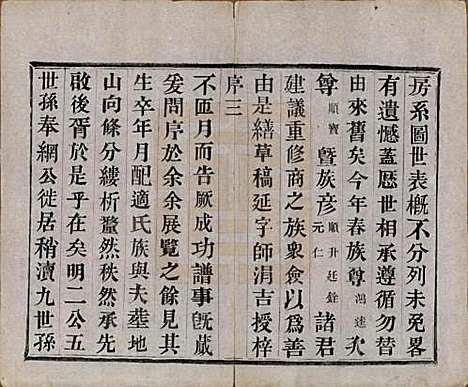 房系圖世表概不分列未免畧
有遺憾蓋歷世相承遵循勿替
由來舊矣今年春族尊鴻逵次
尊順寶曁族彦順升廷銓元仁諸君
建議重修商之族衆僉以爲善
由是繕草稿延字師涓吉授梓
序三
不匝月而告厥成功譜事旣蕆
爰問序於余余展覽之餘見其
生卒年月配適氏族與夫塟地
山向條分縷析釐然秩然承先
啟後胥於是乎在矣明二公五
世孫奉網公徙居稍瀆九世孫